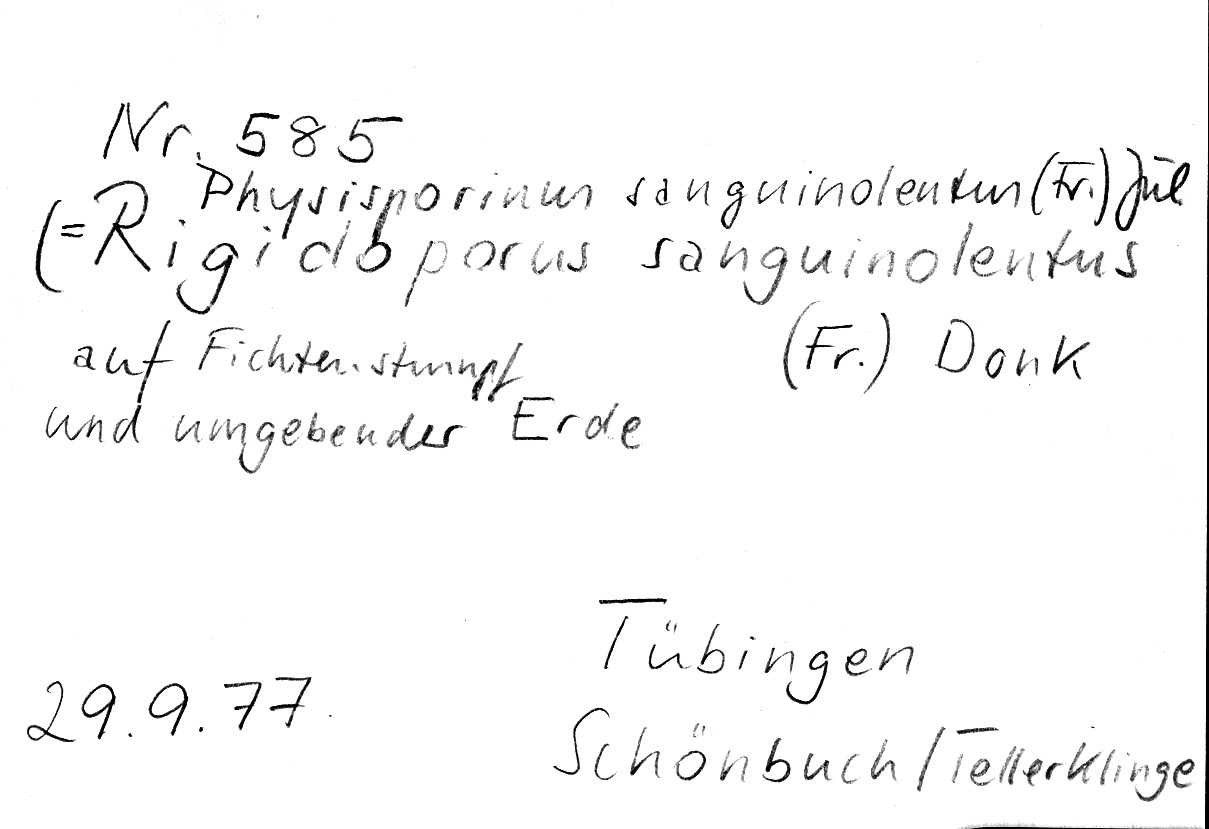 Nr. 585
Physisporinus sanguinolentus (Fr.) Jül
(= Rigidoporus sanguinolentus
(Fr.) Donk
auf Fichtenstumpf
und umgebender Erde
Tübingen
29.9.77
Schönbuch/Tellerklinge